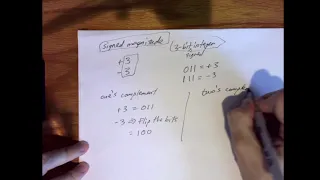 signed magnitude
3-bit integer
signed
+3
-3
011 = +3
111 = -3
one's complement
+3 = 011
-3 => Flip the bits
= 100
two's comple